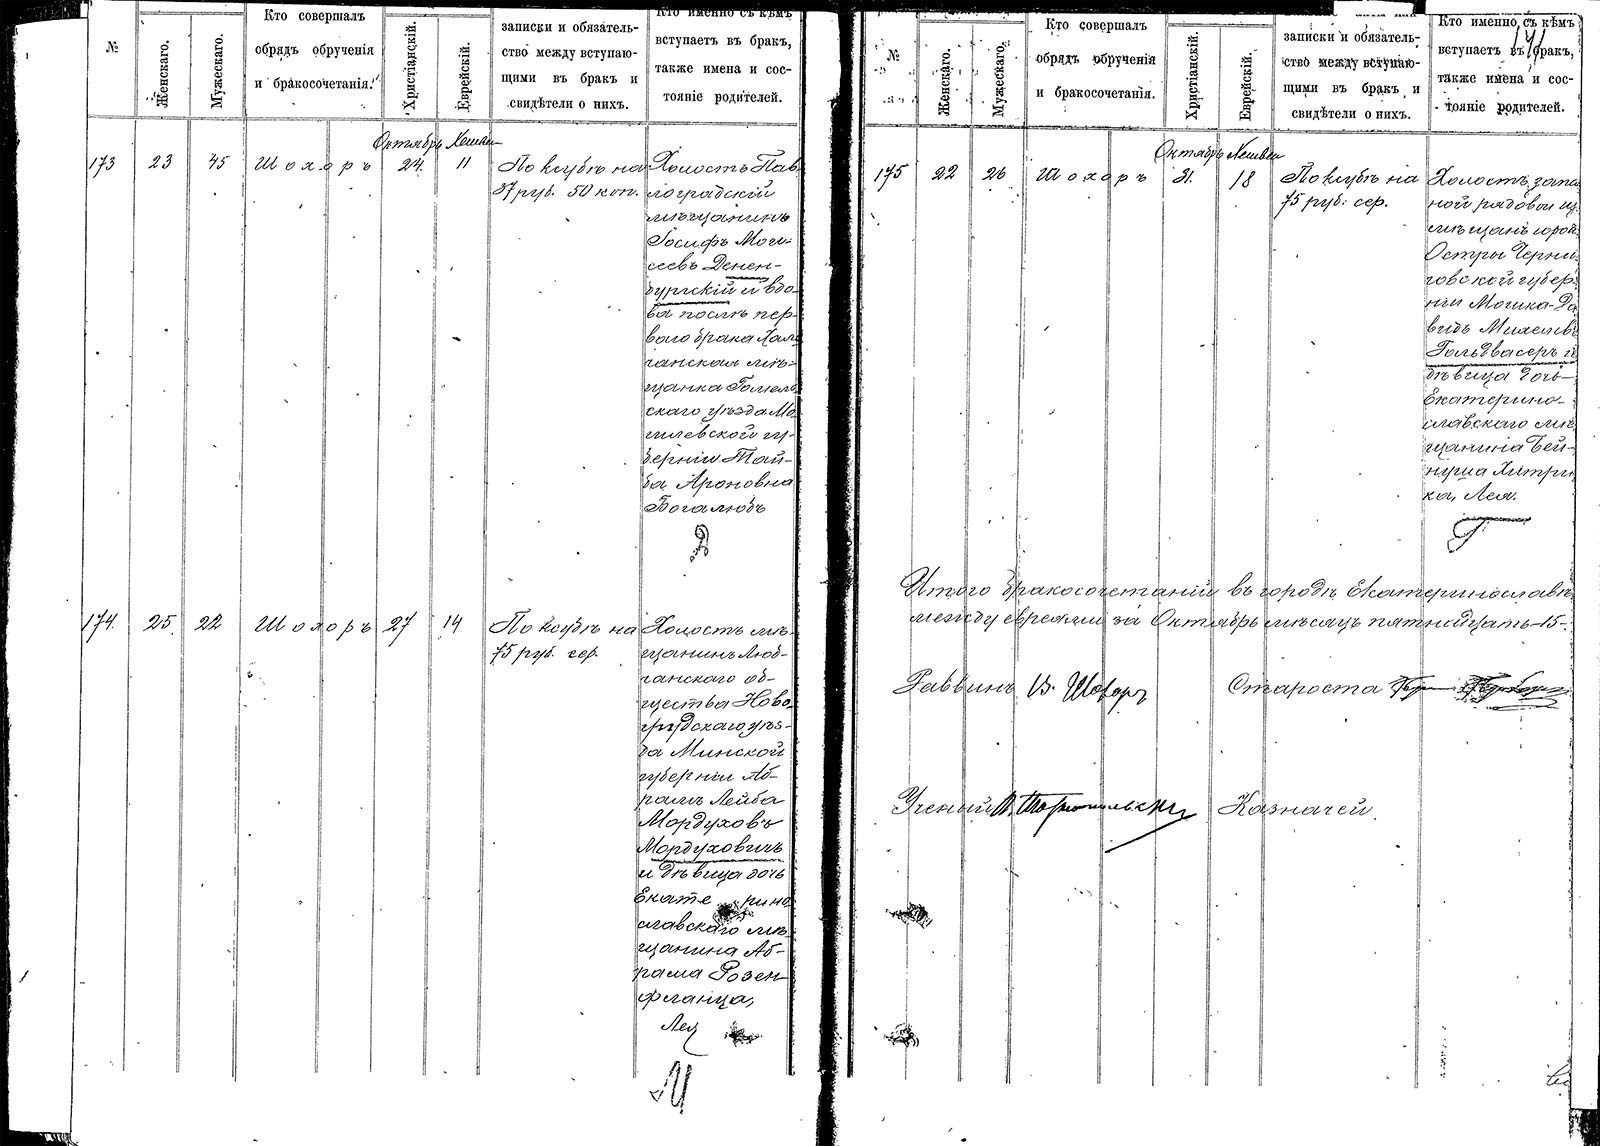 №
Женскаго.
Мужескаго.
Кто совершалъ
обрядъ обрученія
и бракосочетанія.
Христіанскій.
Еврейскій.
записки и обязатель-
ство между вступаю-
щими въ бракъ и
свидѣтели о нихъ.
Кто именно съ кѣмъ
вступаетъ въ бракъ,
также имена и сос-
тояніе родителей.
Октябрь Хешван
173 23 45 Шохоръ 24. 11
По ктубѣ на
37 руб. 50 коп.
Холостъ Пав-
лоградскій
мѣщанинъ
Іосифъ Мои-
сеевъ Денен-
бургскій и вдо-
ва послѣ пер-
ваго брака Хал-
чанская мѣ-
щанка Гомель-
скаго уѣзда Мо-
гилевской гу-
берніи Тай-
ба Ароновна
Богалюбъ
Д
174. 25 22 Шохоръ 27 14
По ктубѣ на
75 руб. сер.
Холостъ мѣ-
щанинъ Люб-
чанскаго об-
щества Ново-
грудскаго уѣз-
да Минской
губерніи Аб-
рамъ Лейба
Мордуховъ
Мордуховичъ
и дѣвица дочь
Екате рино
славскаго мѣ-
щанина Аб-
рама Розен-
фланца,
Лея
М
171
№
Женскаго.
Мужескаго.
Кто совершалъ
обрядъ обрученія
и бракосочетанія.
Христіанскій.
Еврейскій.
записки и обязатель-
ство между вступаю-
щими въ бракъ и
свидѣтели о нихъ.
Кто именно съ кѣмъ
вступаетъ въ бракъ,
также имена и сос-
тояніе родителей.
Октябрь Хешван
175 22 26 Шохоръ 31. 18
По ктубѣ на
75 руб. сер.
Холостъ запас
ной рядовой из
мѣщанъ город.
Остры Черни-
говской губер-
ніи Мошка-Да
видъ Михелевъ
Гольдвасеръ и
дѣвица дочь
Екатерино-
славскаго мѣ
щанина Бей-
нуша Хитри
ка, Лея.
Г
Итого бракосочетаній въ городѣ Екатеринославѣ
между евреями за Октябрь мѣсяцъ пятнадцать-15-.
Раввинъ В. Шохоръ Староста
Ученый Казначей.